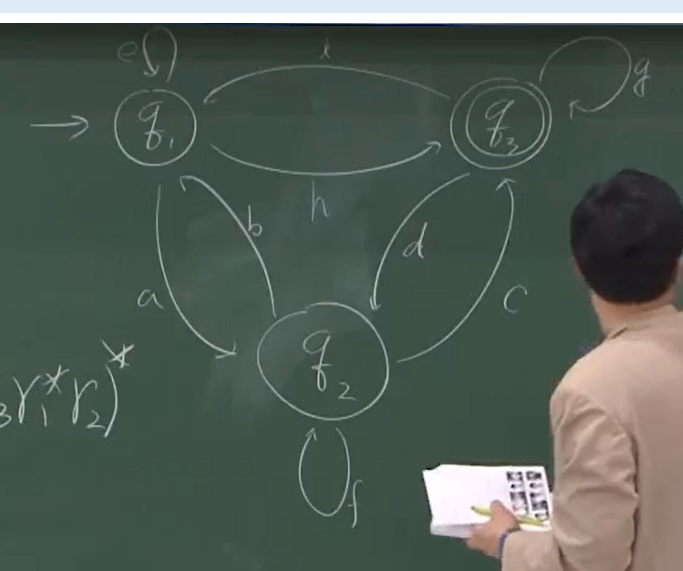 e
i
g
q₁
q₃
h
b
d
a
c
q₂
₃r₁*r₂)*
f